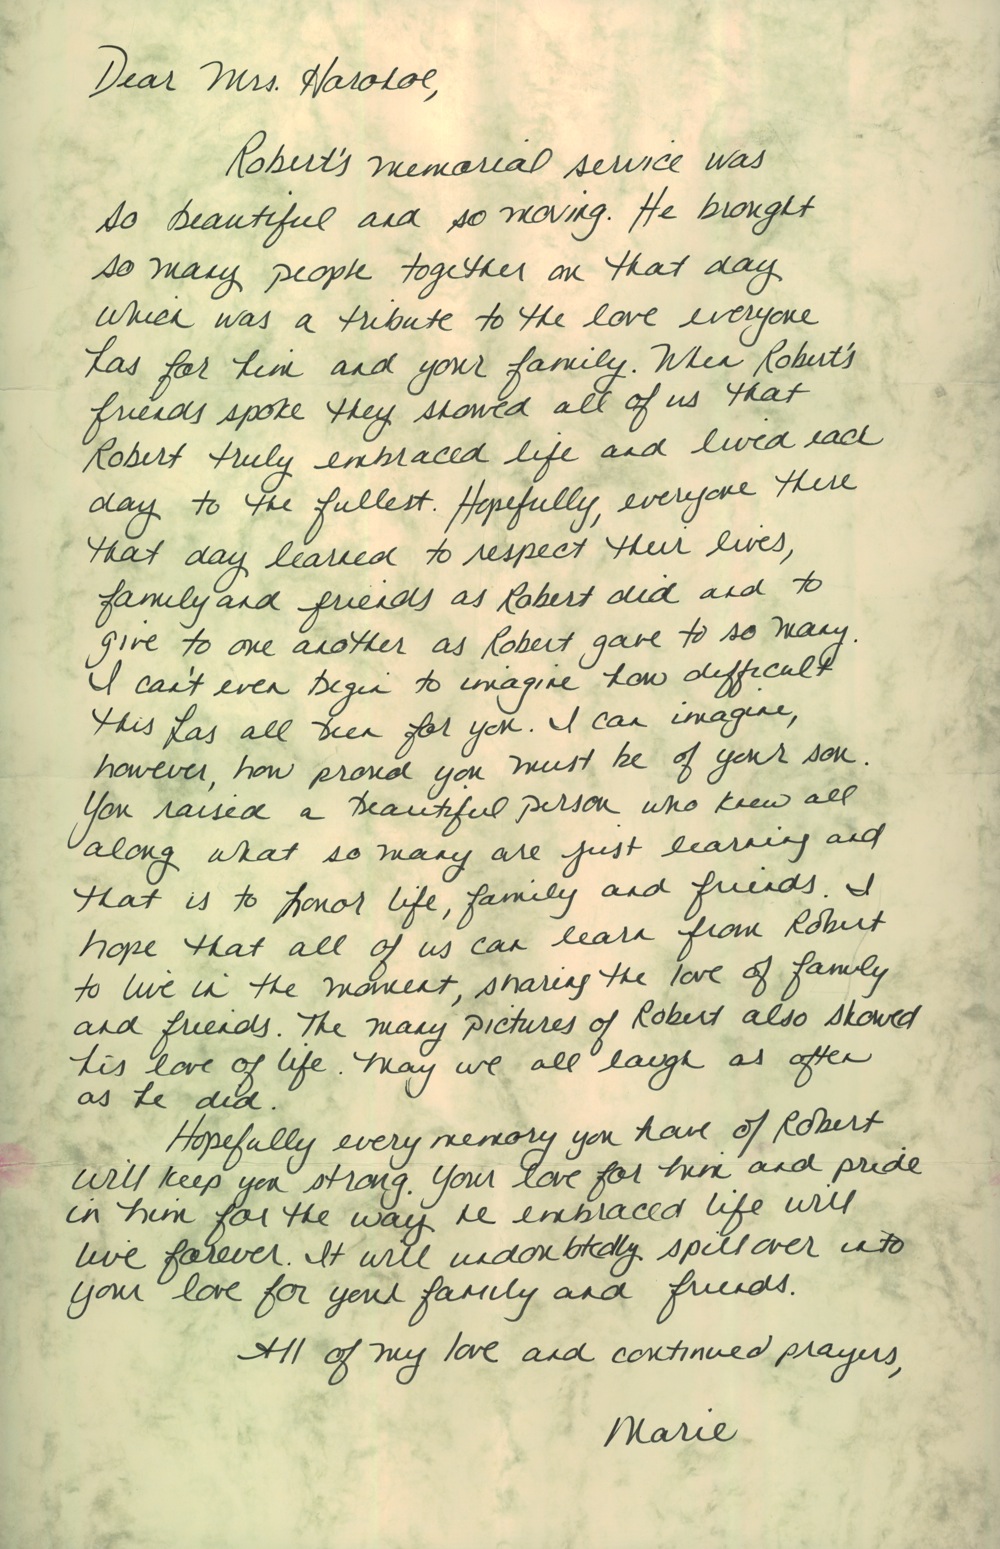 Dear Mrs.
Robert's memorial service was
so beautiful and so moving. He brought
so many people together on that day
which was a tribute to the love everyone
has for him and your family. When Robert's
friends spoke they showed all of us that
Robert truly embraced life and lived each
day to the fullest. Hopefully, everyone there
that day learned to respect their lives,
family and friends as Robert did and to
give to one another as Robert gave to so many.
I can't even begin to imagine how difficult
this has all been for you. I can imagine,
however, how proud you must be of your son.
You raised a beautiful person who knew all
along what so many are just learning and
that is to honor life, family and friends. I
hope that all of us can learn from Robert
to live in the moment, sharing the love of family
and friends. The many pictures of Robert also showed
his love of life. May we all laugh as often
as he did.
Hopefully every memory you have of Robert
will keep you strong. Your love for him and pride
in him for the way he embraced life will
live forever. It will undoubtedly spill over into
your love for your family and friends.
All of my love and continued prayers,
Marie